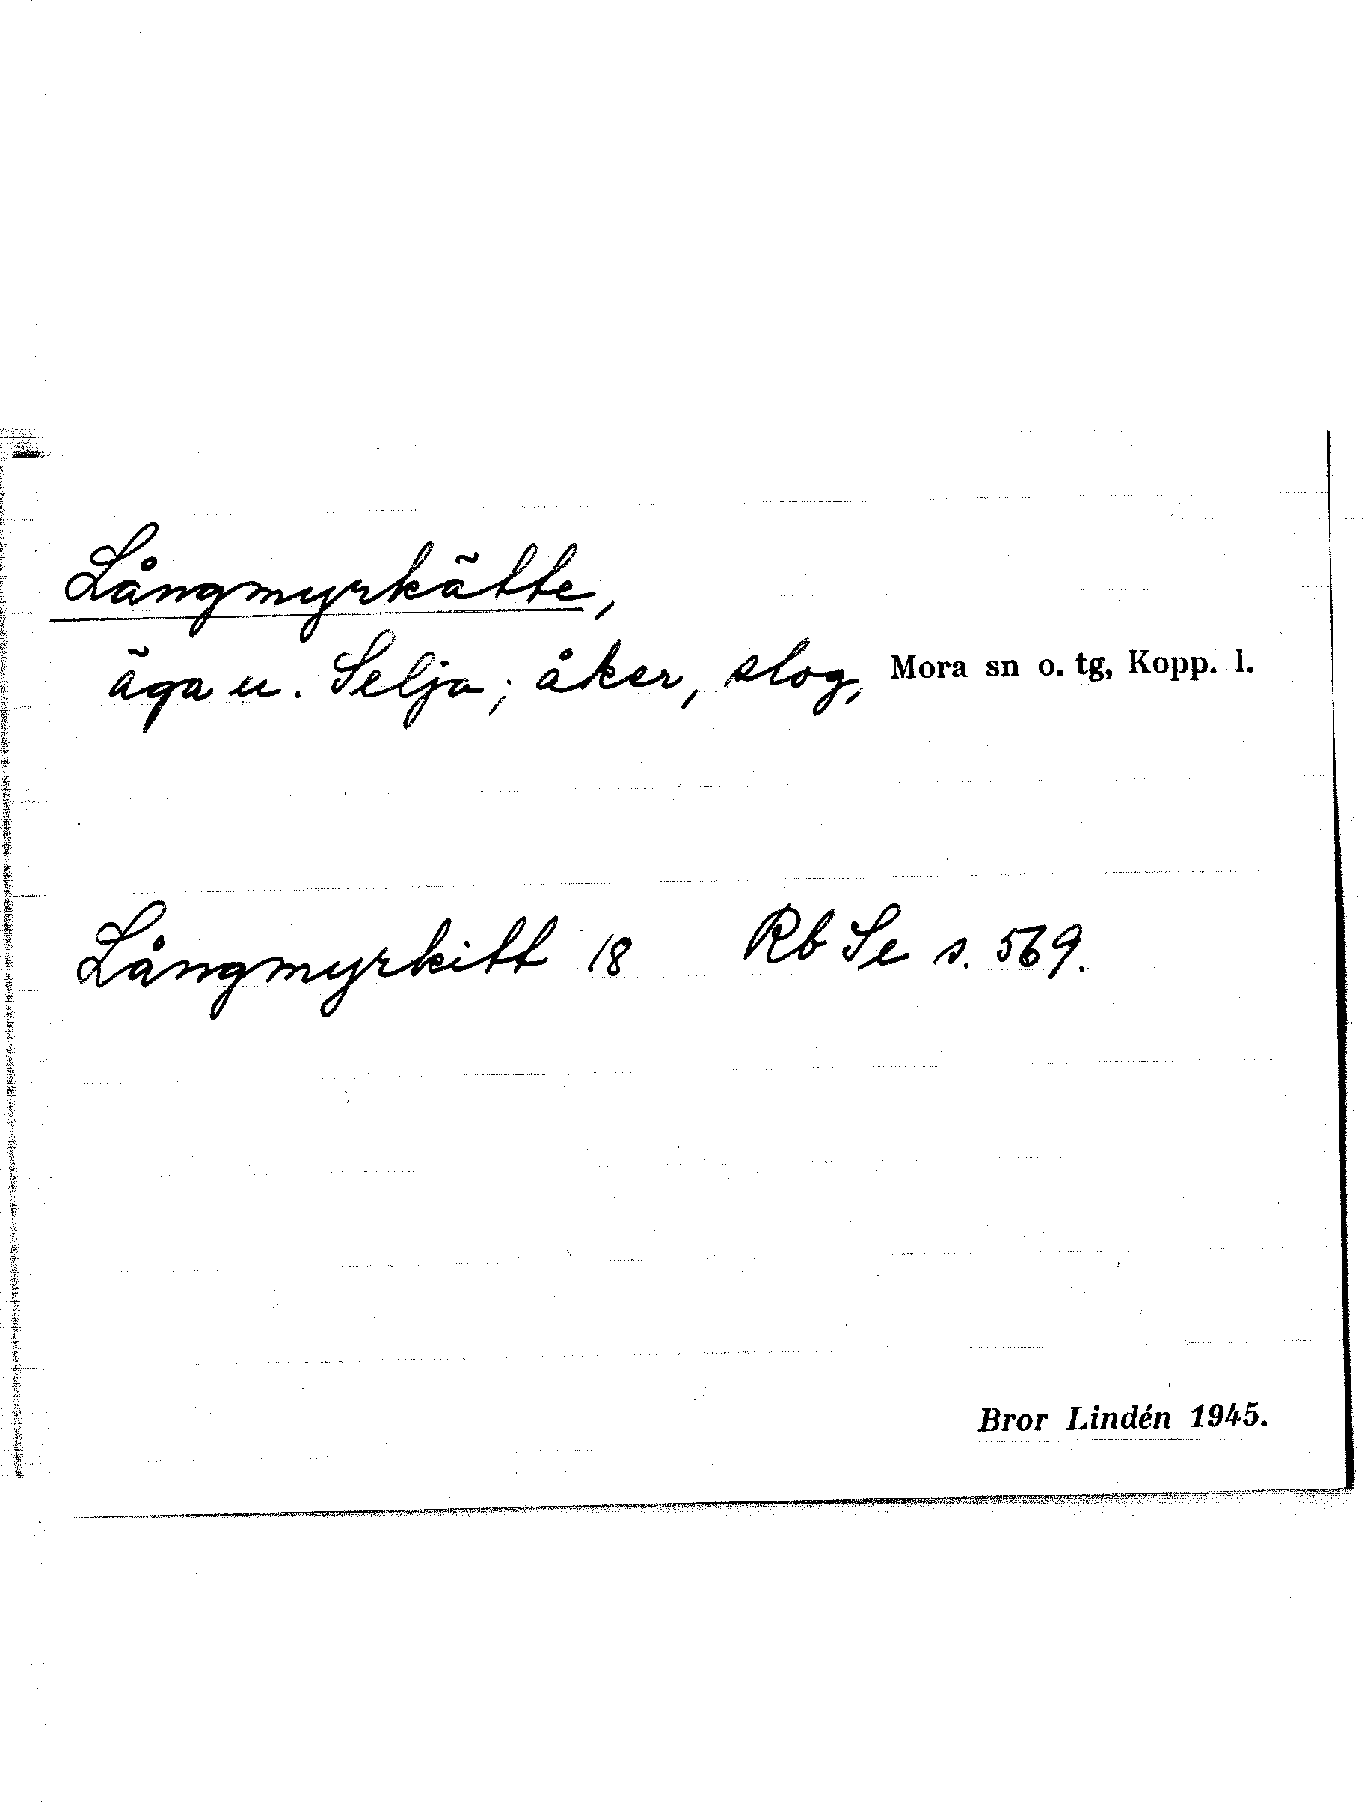 Långmyrkätte,
äga u. Selja; åker, slog, Mora sn o. tg, Kopp. l.
Långmyrkitt 18 Rb Se s. 569.
Bror Lindén 1945.